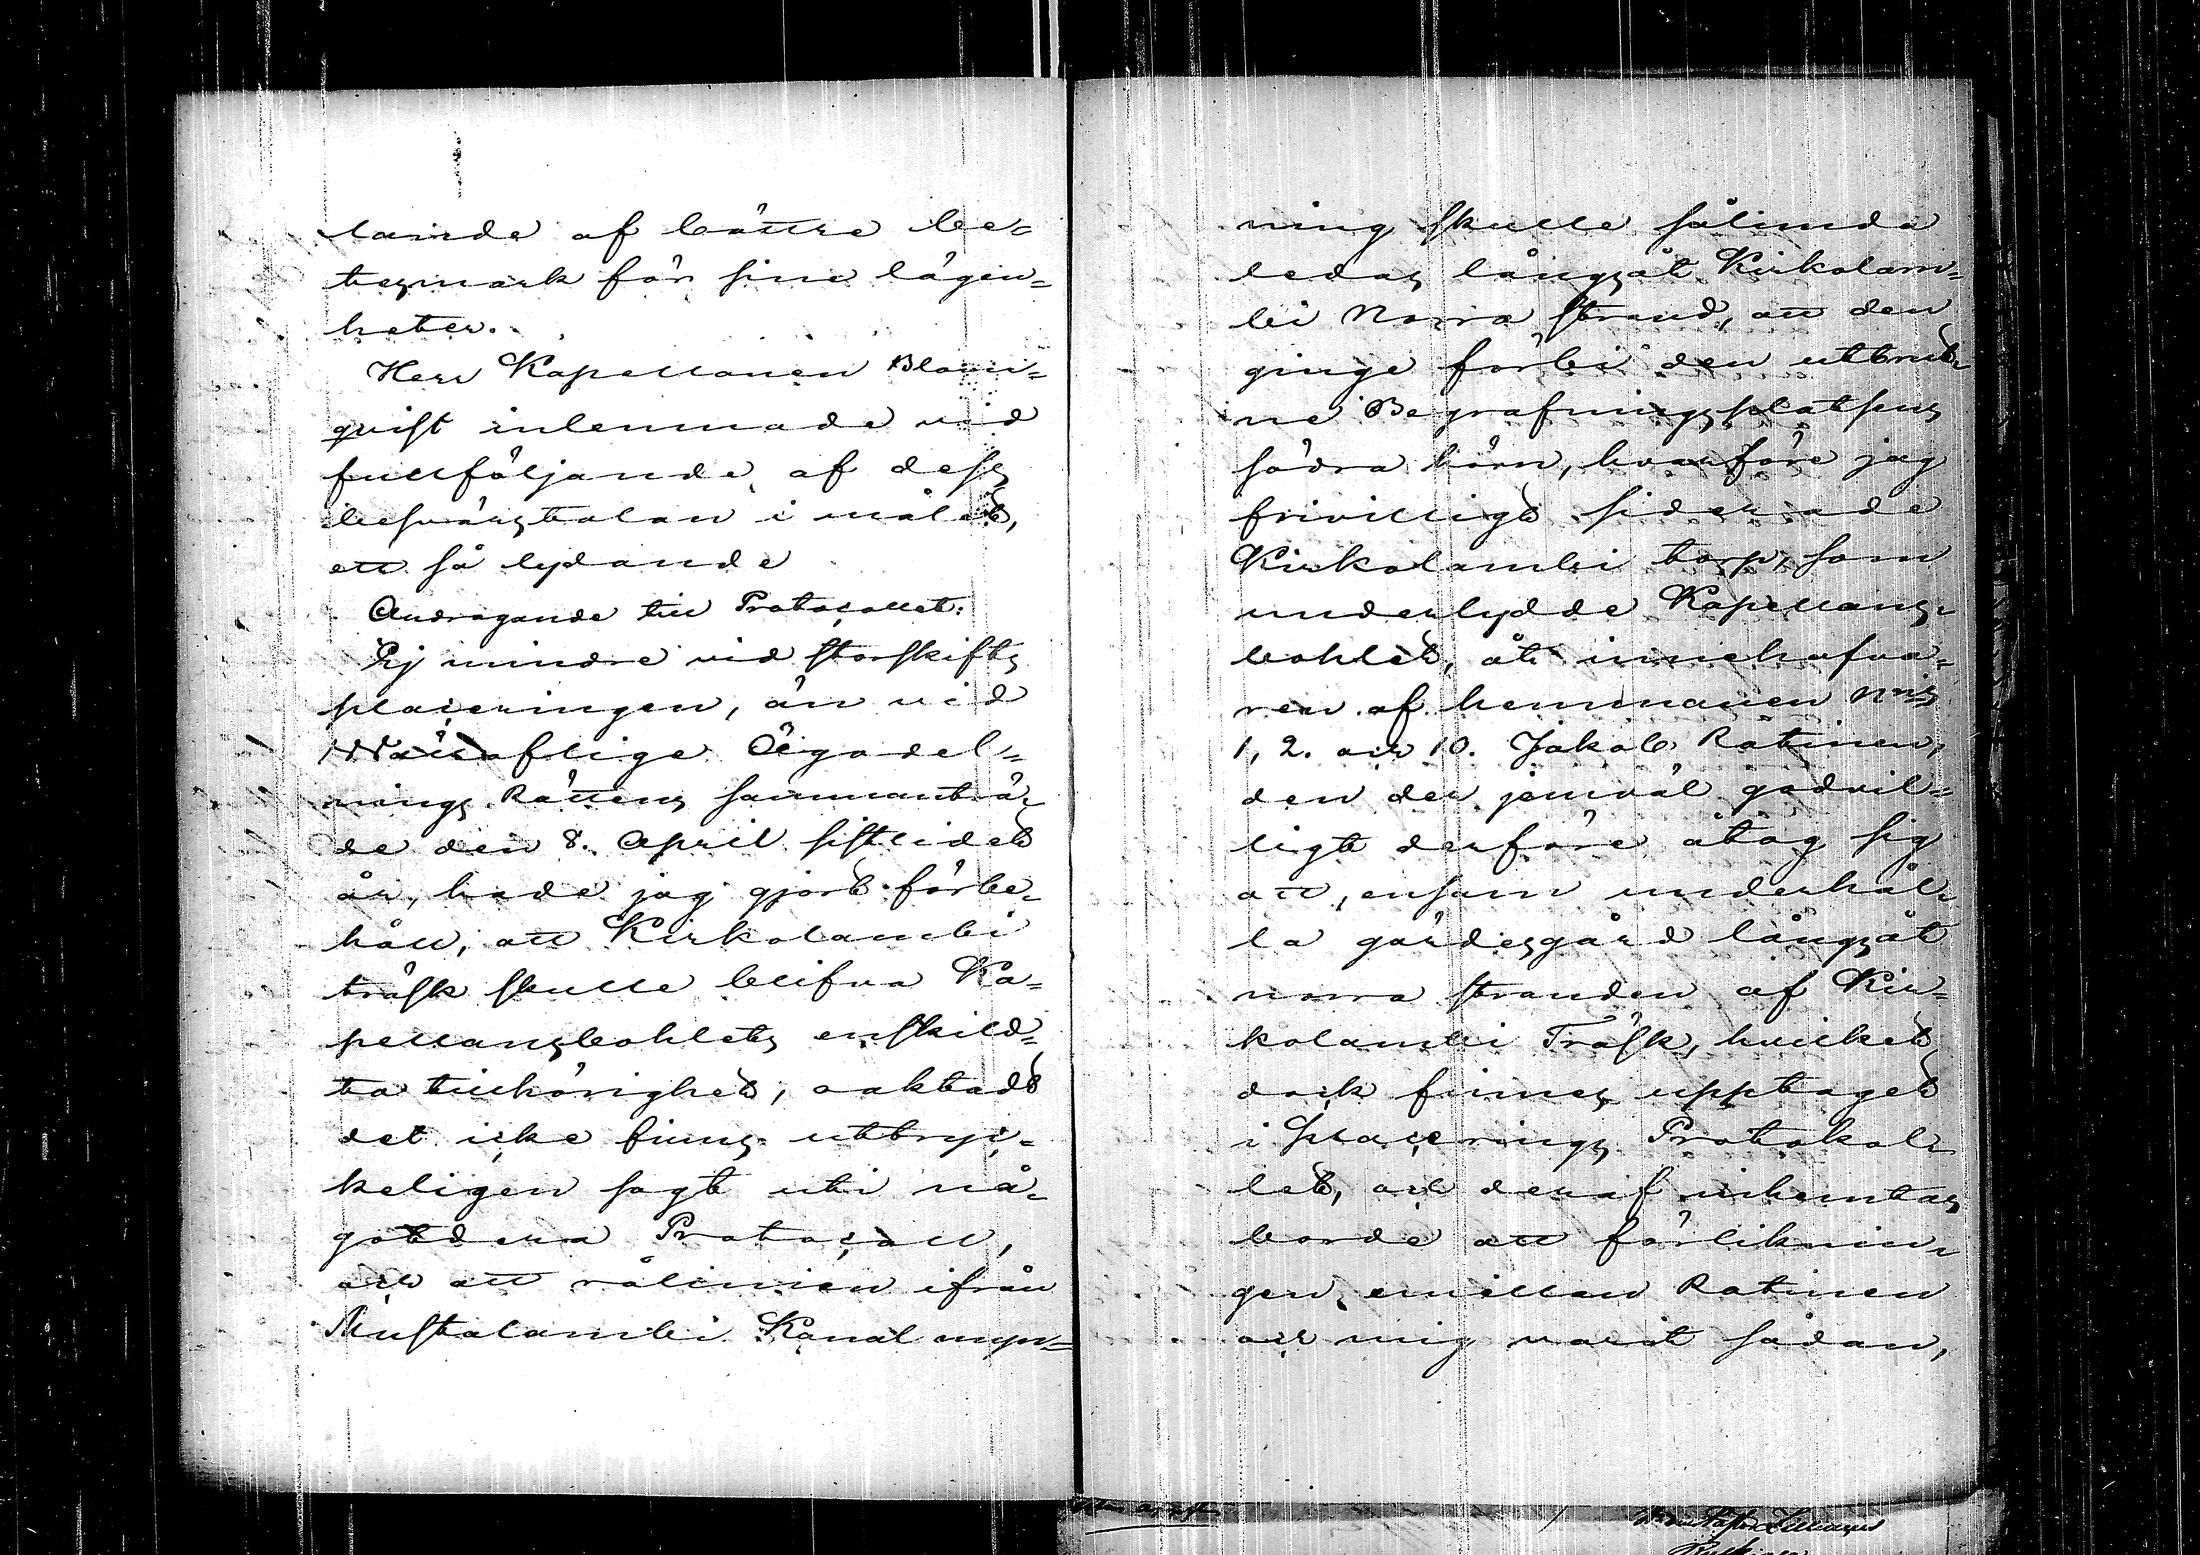 lande af bättre be-
tesmark för sine lägen-
heter.
Herr Kapellanen Blom-
qvist inlemnade vid
fullföljande af dess
besvärstalan i målet,
ett så lydande
Andragande till Protocollet:
Ej mindre vid storskifts
placeringen, än vid
Wällofliga Ägodel-
nings Rättens samманträ-
de den 8. April sistlidet
år, hade jag gjort förbe-
håll, att Kirkolambi
träsk skulle blifva Ka-
pellansbohlets enskild-
ta tillhörighet, oaktadt
det icke finns uttryc-
keligen sagt uti nå-
gotdera Protocoll,
och att rålinien ifrån
Mustalambi Kanal myn-
ning skulle sålunda
ledas långsåt Kirkolam-
bi Norra strand, att den
ginge förbi den uttrut-
ne Begrafningsplatsens
södra hörn, hvarföre jag
frivilligt
Kirkolambi torp, som
underlydde Kapellans-
bohlet, åt innehafva-
ren af hemmanen N:ris
1, 2. och 10. Jakob Ratinen,
den der jemväl godvil-
ligt derföre åtog sig
att, ensam underhål-
la gärdesgård långsåt
norra stranden af Kir-
kolambi Träsk, hvilket
dock finnes upptaget
i placerings Protokol-
let, och deraf inhemtas
borde att förliknin-
gen emellan Ratinen
och mig varit sådan,